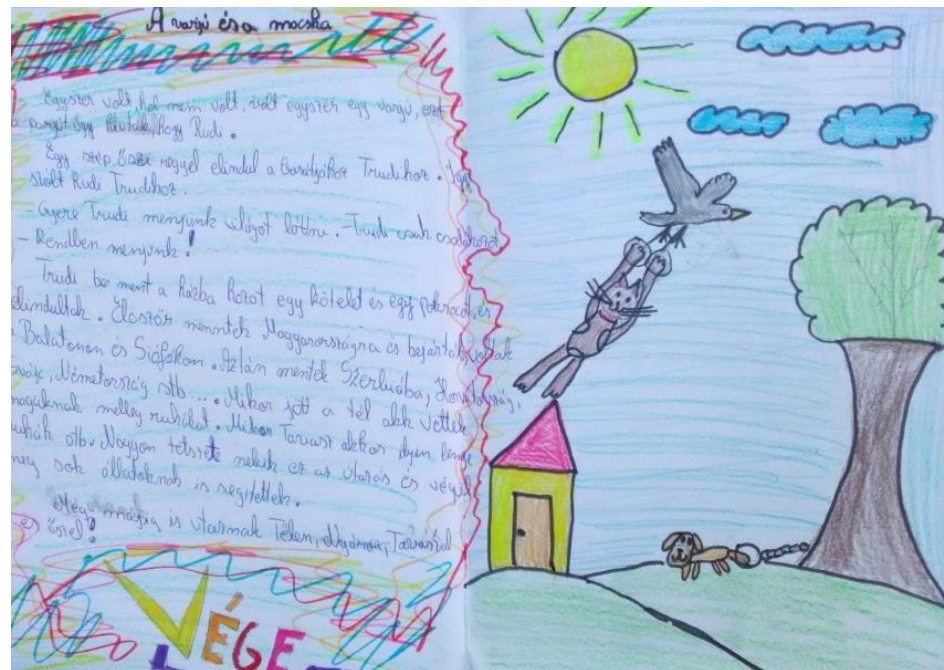 A varjú és a macska
Egyszer volt, hol nem volt, volt egyszer egy varjú, ezt
a varjút úgy hívták, hogy Rudi.
Egy szép őszi reggel elindul a barátjához Trudihoz. Így
szólt Rudi Trudihoz.
- Gyere Trudi menyünk világot látni. - Trudi csak csodálkozot
- Rendben menyünk!
Trudi be ment a házba hozot egy kötelet és egy pokrocot, és
elindultak. Először menntek Magyarországra és bejárták, voltak
Balatonon és Siófokon. Aztán mentek Szerbiába, Horvátország,
Németország stb... Mikor jött a tél akk vettek
maguknak melleg ruhákat. Mikor Tavasz akkor ilyen lenge
ruhák stb. Nagyon tetszete nekik ez az útazás és végül
meg sok állatoknak is segitettek.
Még máig is utaznak Télen, Tavaszal
ősze!
VÉGE